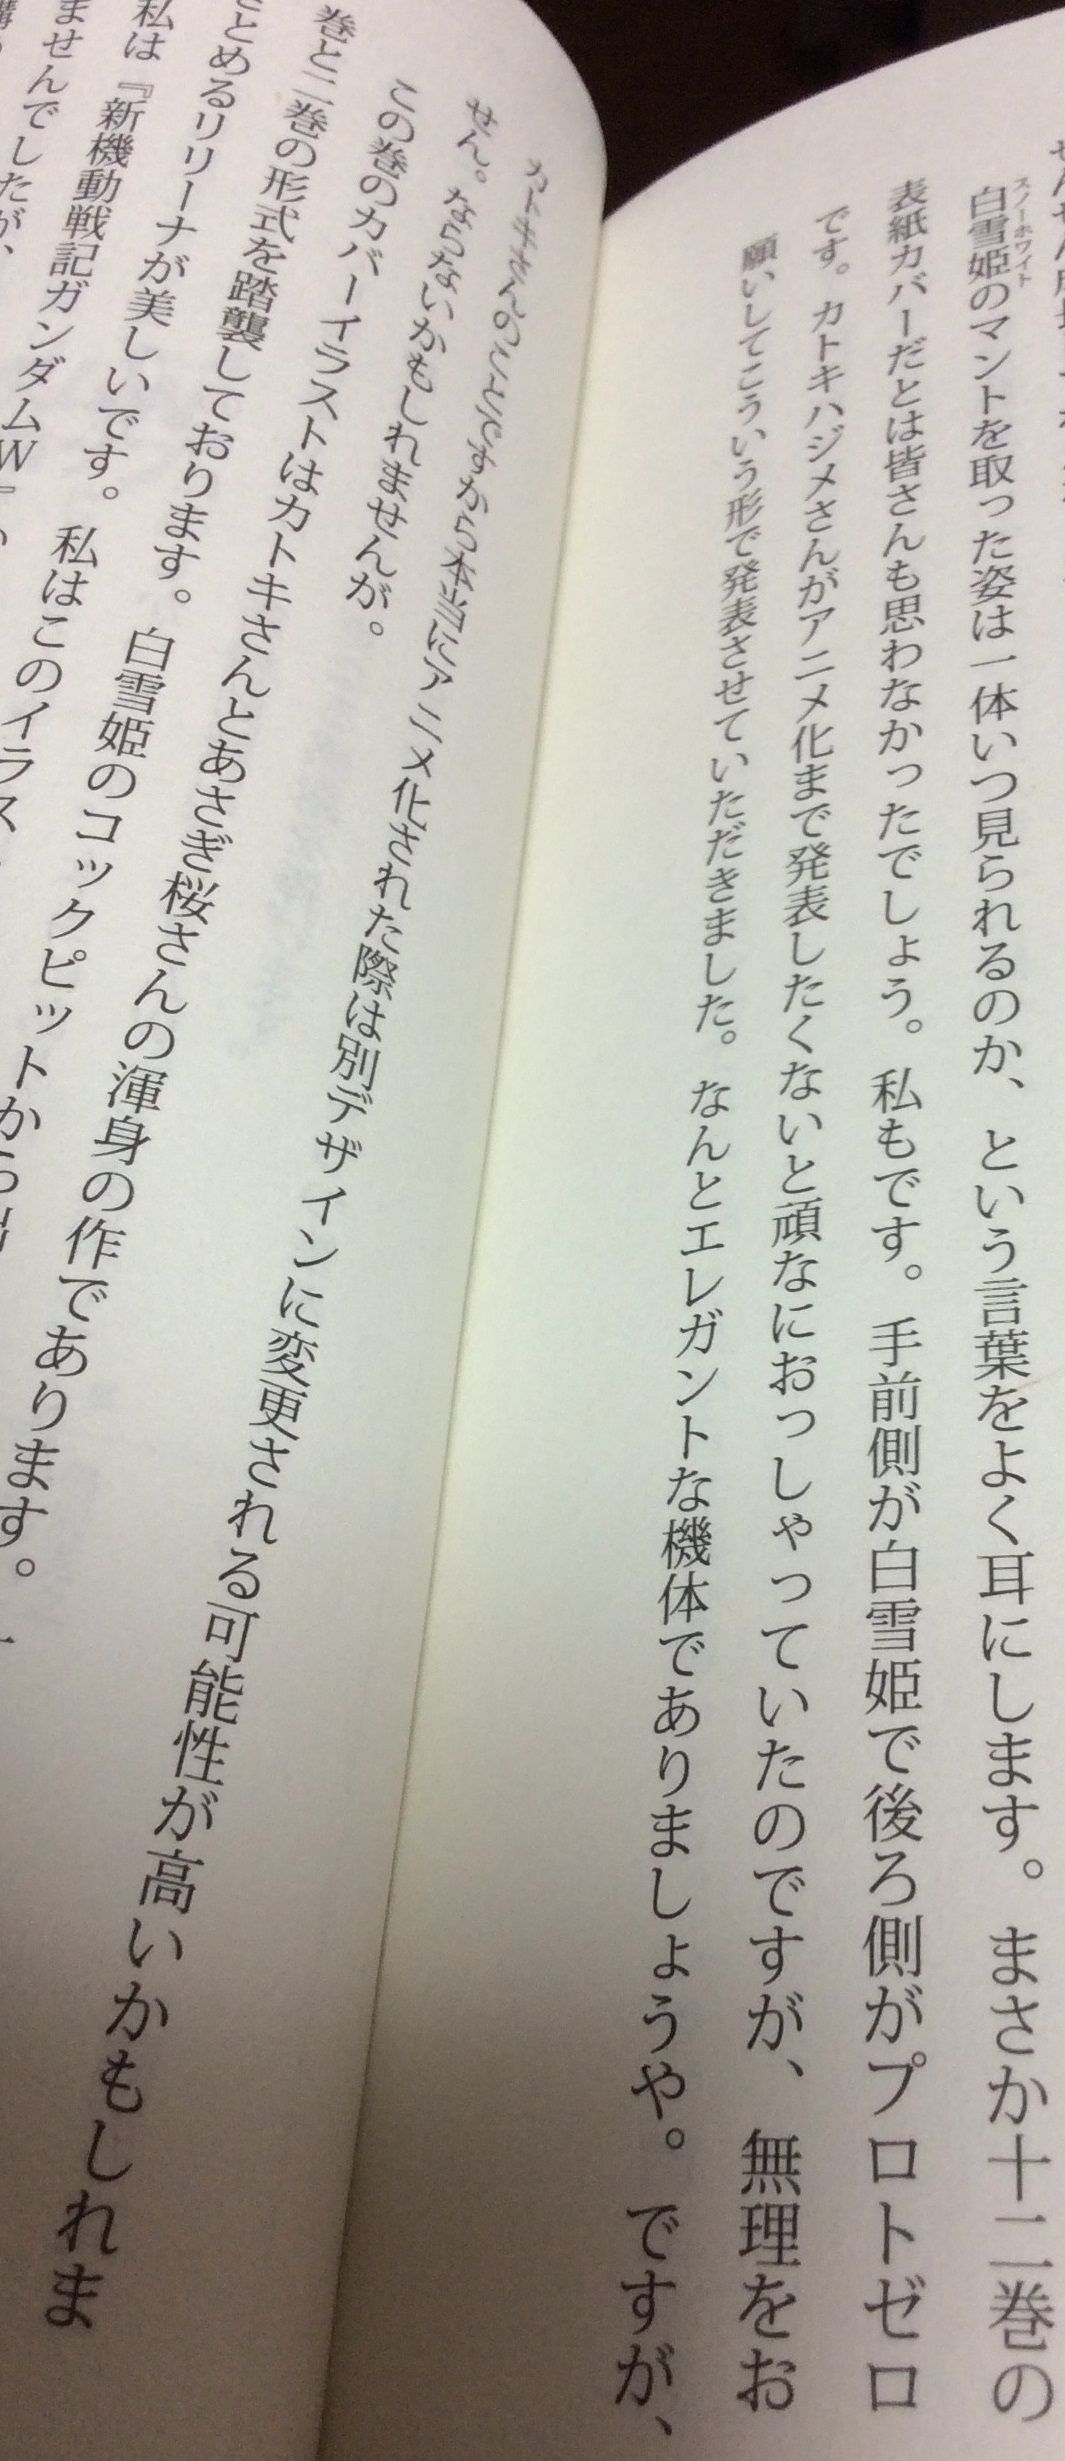 白雪姫のマントを取った姿は一体いつ見られるのか、という言葉をよく耳にします。まさか十二巻の
スノーホワイト
表紙カバーだとは皆さんも思わなかったでしょう。私もです。手前側が白雪姫で後ろ側がプロトゼロ
です。カトキハジメさんがアニメ化まで発表したくないと頑なにおっしゃっていたのですが、無理をお
願いしてこういう形で発表させていただきました。なんとエレガントな機体でありましょうや。ですが、
カトキさんのことですから本当にアニメ化された際は別デザインに変更される可能性が高いかもしれま
せん。ならないかもしれませんが。
この巻のカバーイラストはカトキさんとあさぎ桜さんの渾身の作であります。
巻と二巻の形式を踏襲しております。白雪姫のコックピットから
とめるリリーナが美しいです。私はこのイラス
私は『新機動戦記ガンダムW』
ませんでしたが、